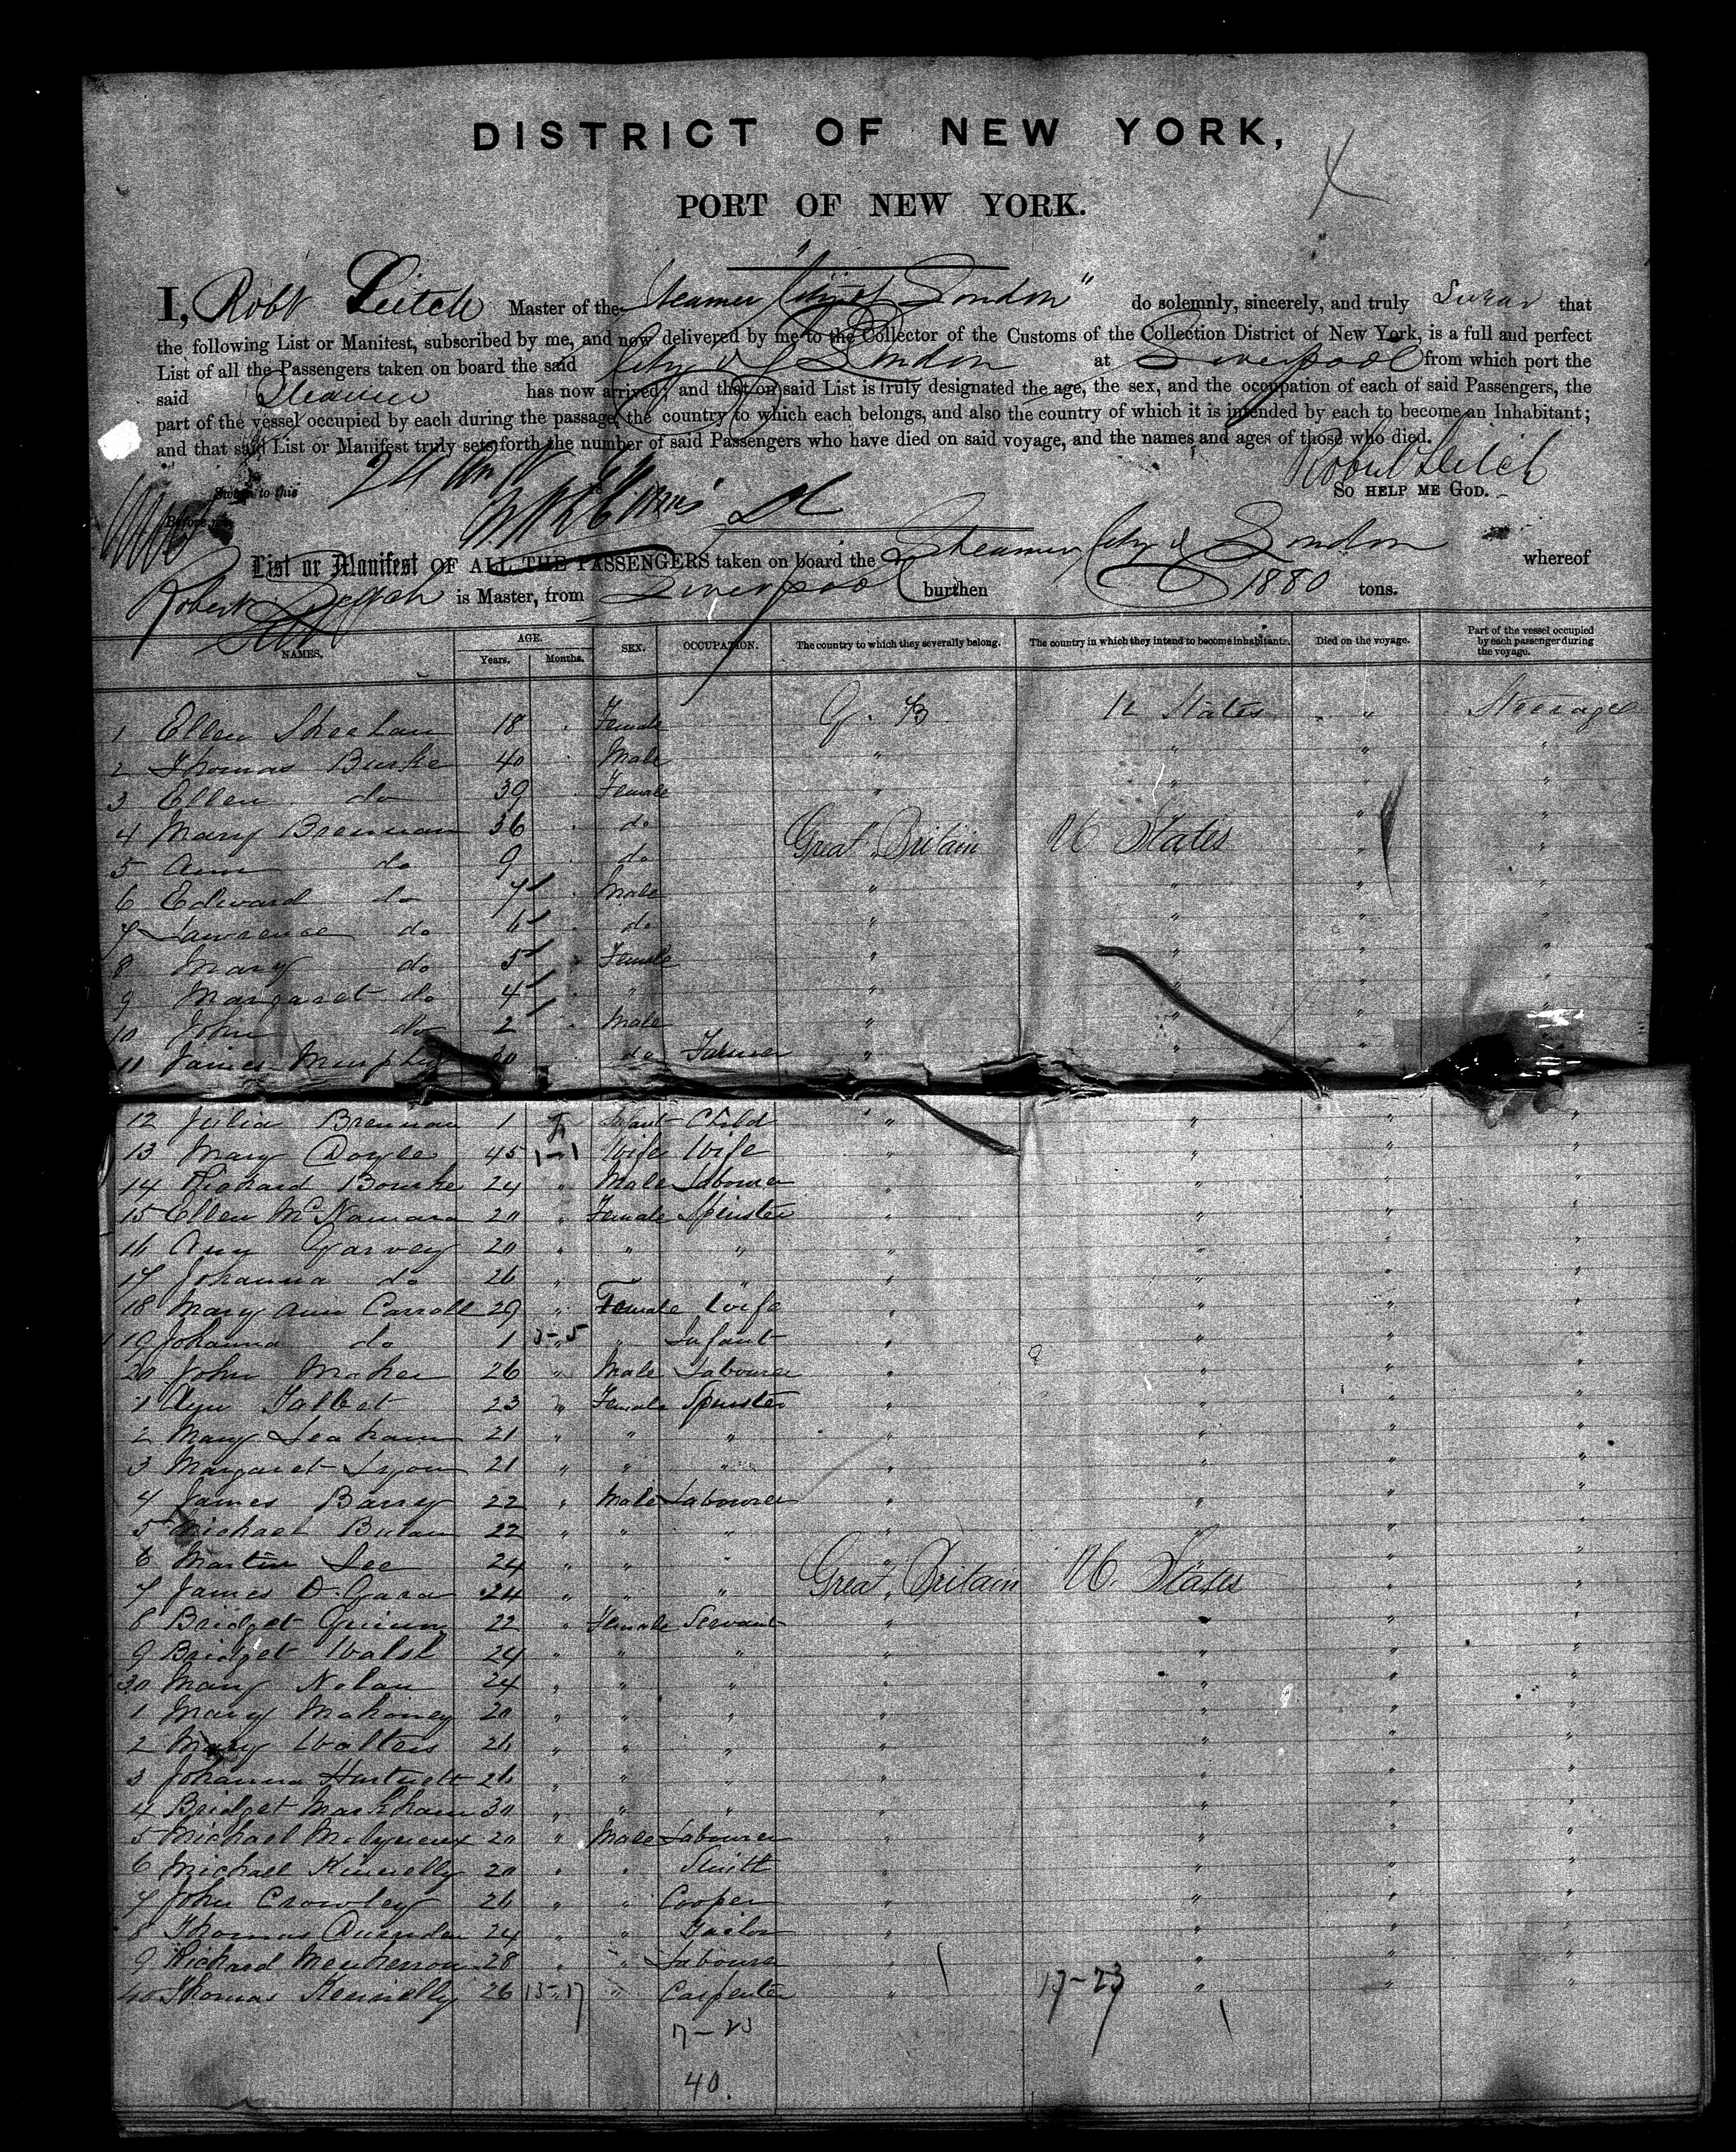 DISTRICT OF NEW YORK,
PORT OF NEW YORK.
I, Robt Leitch Master of the Steamer "City of London" do solemnly, sincerely, and truly Swear that
the following List or Manifest, subscribed by me, and now delivered by me to the Collector of the Customs of the Collection District of New York, is a full and perfect
List of all the Passengers taken on board the said City of London at Liverpool from which port the
said Steamer has now arrived; and that on said List is truly designated the age, the sex, and the occupation of each of said Passengers, the
part of the vessel occupied by each during the passage, the country to which each belongs, and also the country of which it is intended by each to become an Inhabitant;
and that said List or Manifest truly sets forth the number of said Passengers who have died on said voyage, and the names and ages of those who died.
Robert Leitch
Sworn to this 24 18
SO HELP ME GOD.
Before me
List or Manifest OF ALL THE PASSENGERS taken on board the Steamer City of London whereof
Robert Leitch is Master, from Liverpool burthen 1880 tons.
NAMES. AGE. Years. Months. SEX. OCCUPATION. The country to which they severally belong. The country in which they intend to become inhabitants. Died on the voyage. Part of the vessel occupied by each passenger during the voyage.
1 Ellen Sheehan 18 Female G. B. U States " Steerage
2 Thomas Burke 40 Male " " " "
3 Ellen do 39 Female " " " "
4 Mary Brennan 36 do " " "
5 Ann do 9 do Great Britain U States " "
6 Edward do 7 Male " " " "
7 Lawrence do 6 do " " " "
8 Mary do 5 Female " " " "
9 Margaret do 4 " " " " "
10 John do 2 Male " " " "
11 James Murphy 30 do Labourer " " "
12 Julia Brennan 1 Infant Child " " " "
13 Mary Doyle 45 1-1 Wife Wife " " " "
14 Richard Bourke 24 " Male Labourer " " " "
15 Ellen McNamara 20 " Female Spinster " " " "
16 Ann Garvey 20 " " " " " " "
17 Johanna do 26 " " " " " "
18 Mary Ann Carroll 29 " Female Wife " " " "
19 Johanna do 1 3-5 " Infant " " " "
20 John Maher 26 " Male Labourer " " " "
1 Ann Talbot 23 " Female Spinster " " " "
2 Mary Leaham 21 " " " " " " "
3 Margaret Lyon 21 " " " " " " "
4 James Barry 22 " Male Labourer " " " "
5 Michael 22 " " " " " "
6 Martin Lee 24 " " " " " " "
7 James O'Gara 24 " " " Great Britain U. States " "
8 Bridget Quinn 22 " Female Servant " " " "
9 Bridget Walsh 24 " " " " " " "
30 Mary Nolan 24 " " " " " " "
1 Mary Mahoney 20 " " " " " " "
2 Mary Walters 26 " " " " " " "
3 Johanna Hartnett 26 " " " " " " "
4 Bridget Markham 30 " " " " " " "
5 Michael Molyneux 20 " Male Labourer " " " "
6 Michael Kinnelly 20 " " Smith " " " "
7 John Crowley 26 " " Cooper " " " "
8 Thomas 24 " " Tailor " " " "
9 Richard 28 " " Labourer " " " "
40 Thomas Kennelly 26 13-17 " Carpenter " 17-23 " " "
7-23
40.